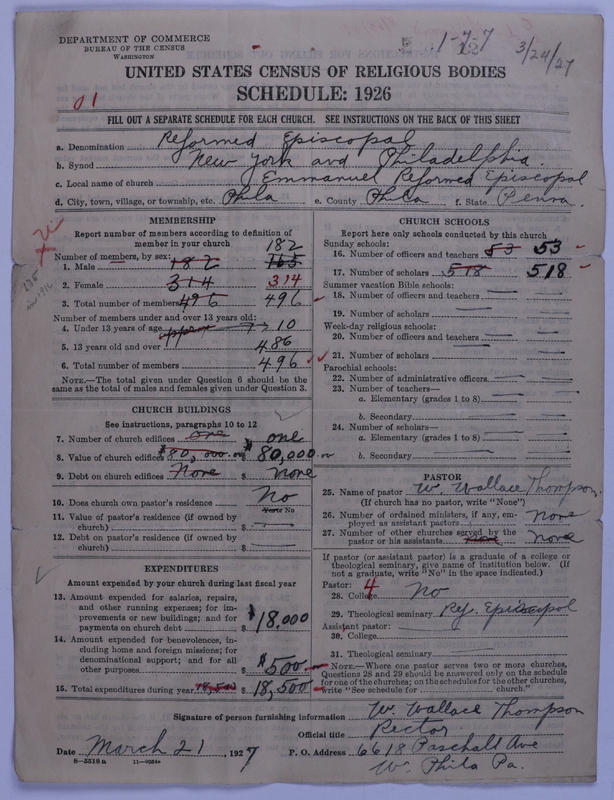 DEPARTMENT OF COMMERCE
BUREAU OF THE CENSUS
WASHINGTON
1-7-7
12
3/24/27
UNITED STATES CENSUS OF RELIGIOUS BODIES
SCHEDULE: 1926
01
FILL OUT A SEPARATE SCHEDULE FOR EACH CHURCH. SEE INSTRUCTIONS ON THE BACK OF THIS SHEET
a. Denomination Reformed Episcopal
b. Synod New York and Philadelphia
c. Local name of church Emmanuel Reformed Episcopal
d. City, town, village, or township, etc. Phila e. County Phila f. State Penna.
MEMBERSHIP
Report number of members according to definition of
member in your church
Number of members, by sex: 182
1. Male 182 165
2. Female 314 314
3. Total number of members 496 496
Number of members under and over 13 years old:
4. Under 13 years of age approx 10
5. 13 years old and over 486
6. Total number of members 496
NOTE.—The total given under Question 6 should be the
same as the total of males and females given under Question 3.
CHURCH BUILDINGS
See instructions, paragraphs 10 to 12
7. Number of church edifices one one
8. Value of church edifices $80,000.00 $80,000.00
9. Debt on church edifices None $ None
10. Does church own pastor's residence No
Yes or No
11. Value of pastor's residence (if owned by
church) $
12. Debt on pastor's residence (if owned by
church) $
EXPENDITURES
Amount expended by your church during last fiscal year
13. Amount expended for salaries, repairs,
and other running expenses; for im-
provements or new buildings; and for
payments on church debt $ $18,000
14. Amount expended for benevolences, in-
cluding home and foreign missions; for
denominational support; and for all
other purposes $ $500
15. Total expenditures during year 18,500 $ 18,500
CHURCH SCHOOLS
Report here only schools conducted by this church
Sunday schools:
16. Number of officers and teachers 53 53
17. Number of scholars 518 518
Summer vacation Bible schools:
18. Number of officers and teachers
19. Number of scholars
Week-day religious schools:
20. Number of officers and teachers
21. Number of scholars
Parochial schools:
22. Number of administrative officers
23. Number of teachers—
a. Elementary (grades 1 to 8)
b. Secondary
24. Number of scholars—
a. Elementary (grades 1 to 8)
b. Secondary
PASTOR
25. Name of pastor W. Wallace Thompson
(If church has no pastor, write "None")
26. Number of ordained ministers, if any, em-
ployed as assistant pastors None
27. Number of other churches served by the
pastor or his assistants None None
If pastor (or assistant pastor) is a graduate of a college or
theological seminary, give name of institution below. (If
not a graduate, write "No" in the space indicated.)
Pastor: 4
28. College No
29. Theological seminary Ref. Episcopal
Assistant pastor:
30. College
31. Theological seminary
NOTE.—Where one pastor serves two or more churches,
Questions 28 and 29 should be answered only on the schedule
for one of the churches; on the schedules for the other churches,
write "See schedule for church."
Signature of person furnishing information W. Wallace Thompson
Official title Rector
Date March 21, 1927 P. O. Address 6618 Paschall Ave
8—5518a 11—9034a W. Phila Pa.